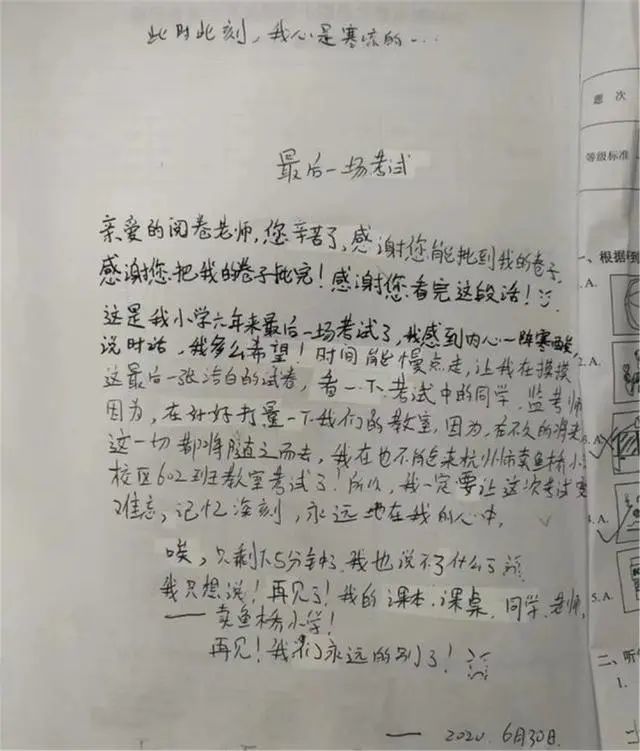 此时此刻，我心是寒凉的…
最后一场考试
亲爱的阅卷老师，您辛苦了，感谢您能批到我的卷子，
感谢您把我的卷子批完！感谢您看完这段话！
这是我小学六年来最后一场考试了，我感到内心一阵寒酸，
说时话，我多么希望！时间能慢点走，让我在摸摸
这最后一张洁白的试卷，看一下考试中的同学，监考师
因为，在好好打量一下我们的教室，因为，在不久的将来
这一切都将随之而去，我在也不能来杭州师卖鱼桥小
校区602班教室考试了！所以，我一定要让这次考试更
难忘，记忆深刻，永远地在我的心中。
唉，只剩下5分钟了，我也说不了什么了
我只想说！再见了！我的课本、课桌、同学、老师，
——卖鱼桥小学！
再见！我们永远的别了！
—— 2020. 6月30日.
惠 次
等级标准
一、根据
1.A.
2.A.
3.A.
4.A.
5.A.
二、听
1.